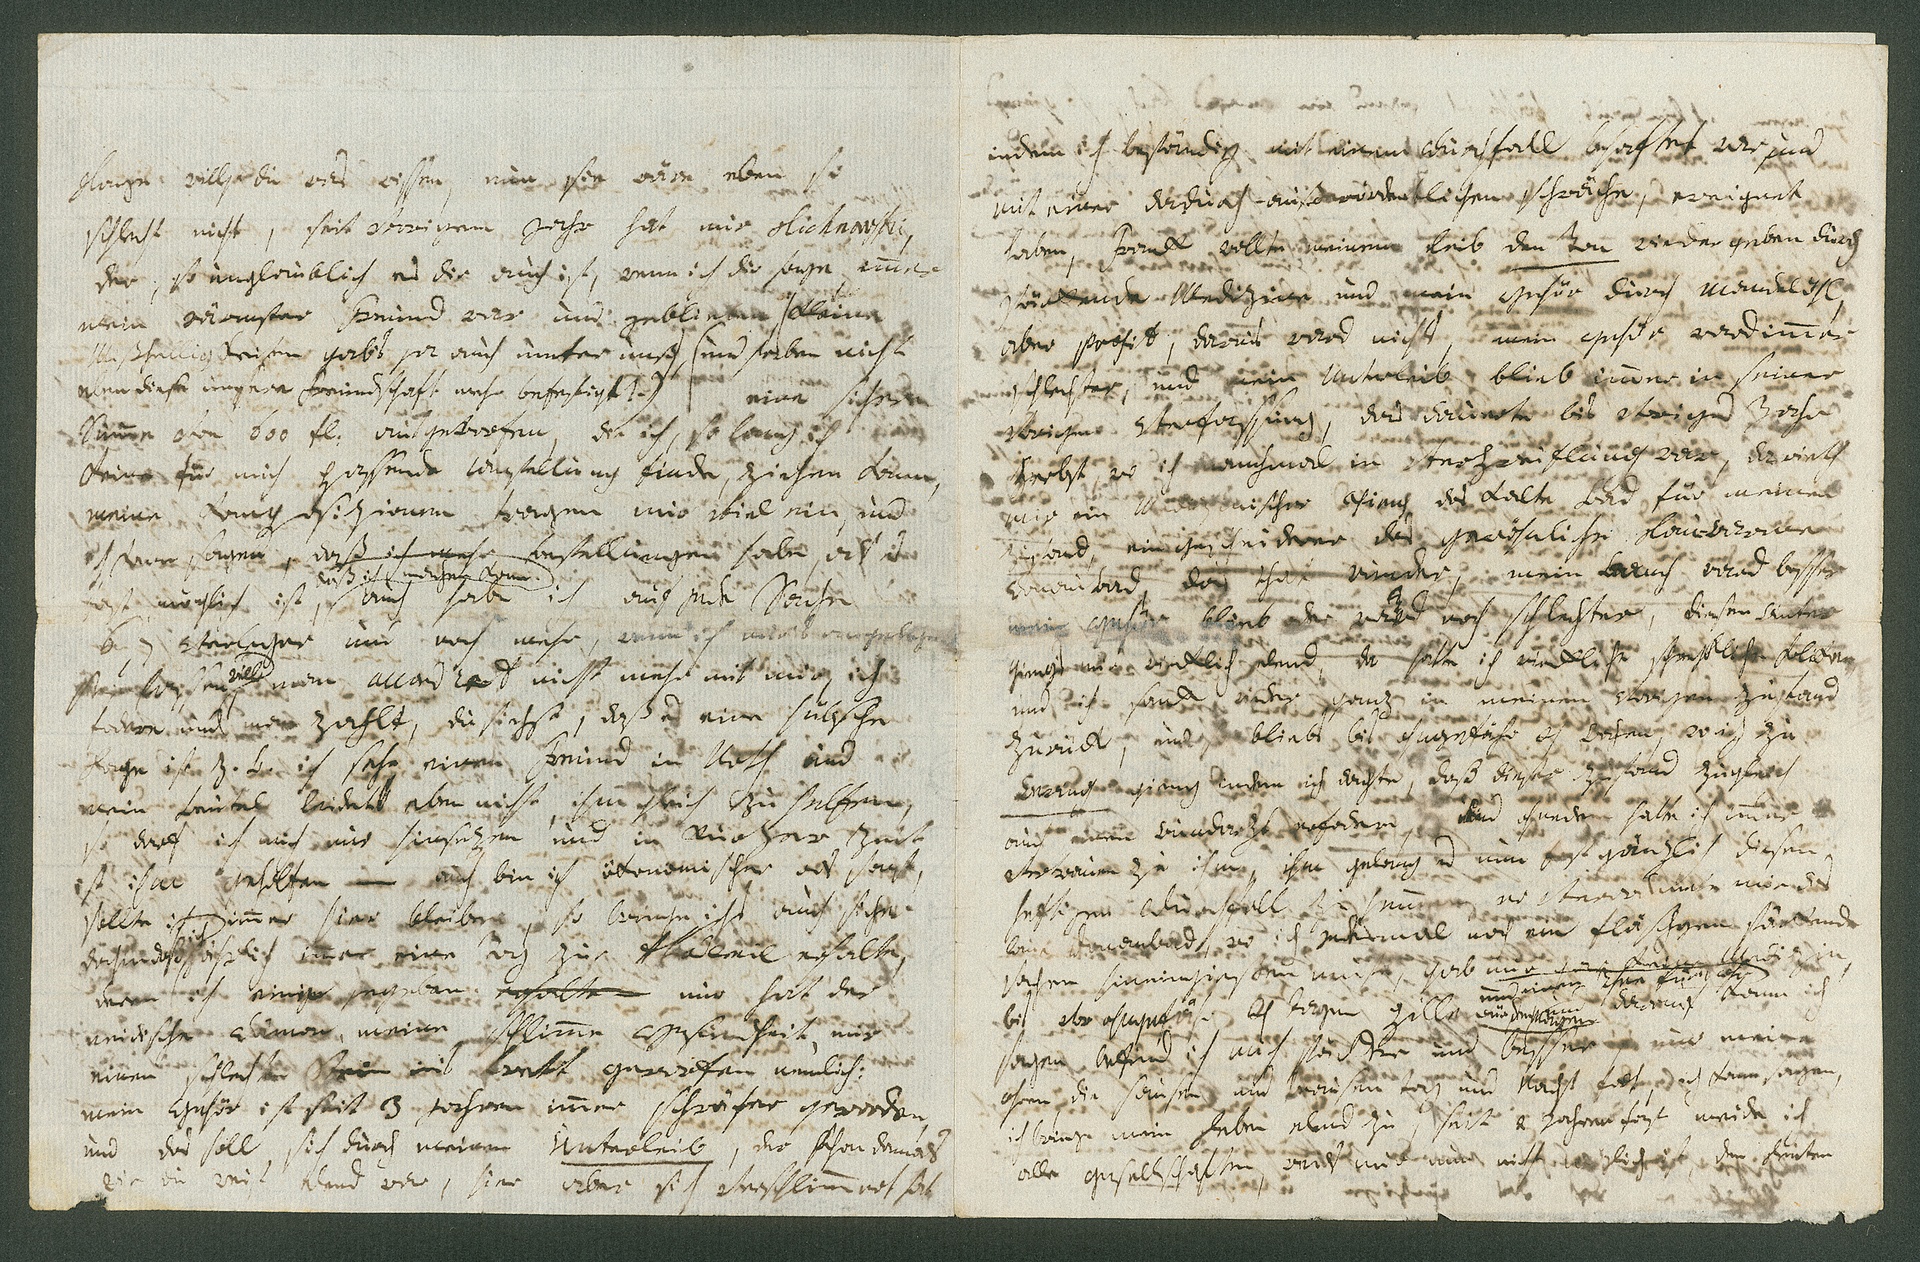 Lage willst du was wissen, nun sie wäre eben so
schlecht nicht, seit vorigem Jahr hat mir Lichnowski,
der, so unglaublich es dir auch ist, wenn ich dir sage, immer
mein wärmster Freund war und geblieben, (kleine
Mißhelligkeiten gab's ja auch unter unß) (und haben nicht
eben diese unsere Freundschaft mehr befestigt?) eine sichere
Summe von 600 fl. ausgeworfen, die ich, so lang ich
keine für mich passende Anstellung finde, ziehen kann,
meine Komposizionen tragen mir viel ein, und
ich kann sagen, daß ich mehr bestellungen habe, als es
fast möglich ist, daß ich machen kann. auch habe ich auf jede Sache
6, 7 Verleger und noch mehr, wenn ich mirs angelegen
sein lassen will, man accordirt nicht mehr mit mir, ich
fodere und man zahlt, du siehst, daß es eine hübsche
Lage ist, z.B. ich sehe einen Freund in Noth und
mein beutel leidet eben nicht, ihm gleich zu helfen,
so darf ich mich nur hinsezen und in Kurzer Zeit
ist ihm geholfen — auch bin ich ökonomischer als sonst,
sollte ich immer hier bleiben, so bringe ichs auch sicher
dahin daß ich jährlich immer einen tag zur Akademie erhalte,
deren ich einige gegeben. erhalte nur hat der
neidische Dämon, meine schlimme Gesundheit, mir
einen schlechten Stein ins brett geworfen, nemlich:
mein Gehör ist seit 3 Jahren immer schwächer geworden,
und das soll sich durch meinen Unterleib, der schon damals
wie du weist elend war, hier aber sich verschlimmert hat
indem ich beständig mit einem Durchfall behaftet war, und
mit einer dadurch außerordentlichen schwäche, ereignet
haben, Frank wollte meinem Leib den Ton wieder geben durch
stärkende Medizine und mein Gehör durch Mandelöhl,
aber prosit, daraus ward nichts, mein gehör ward immer
schlechter, und mein Unterleib blieb immer in seiner
vorigen Verfassung, das dauerte bis voriges Jahr
Herbst, wo ich manchmal in Verzweiflung war, da rieth
mir ein Medizinischer asinus das kalte Bad für meinen
Zustand, ein gescheiderer das gewöhnliche lauwarme
Donaubad, das that wunder, mein Bauch ward besser
mein gehör blieb oder ward noch schlechter, diesen Winter
gieng's mir wirklich elend, da hatte ich wirklich schreckliche Koliken
und ich sank wieder ganz in meinen vorigen Zustand
zurück, und so bliebs bis ohngefähr 4 Wochen, wo ich zu
Wering gieng indem ich dachte, daß dieser Zustand zugleich
auch einen Wundarzt erfodere, und ohnedem hatte ich immer
vertrauen zu ihm, ihm gelang es nun fast gänzlich diesen
heftigen Durchfall zu hemmen, er verordnete mir das
laue Donaubad, wo ich jedesmal noch ein fläschgen stärkende
sachen hineingießen muste, gab mir gar keine Medizin,
bis vor ohngefähr 4 tagen Pillen für den Magen
und einen Thee fürs Ohr, darauf kann ich
sagen befind ich mich stärker und besser, nur meine
ohren, die sausen und brausen tag und Nacht fort, ich kann sagen,
ich bringe mein Leben elend zu, seit 2 Jahren fast meide ich
alle gesellschaften, weils mir nun nicht möglich ist, den Leuten